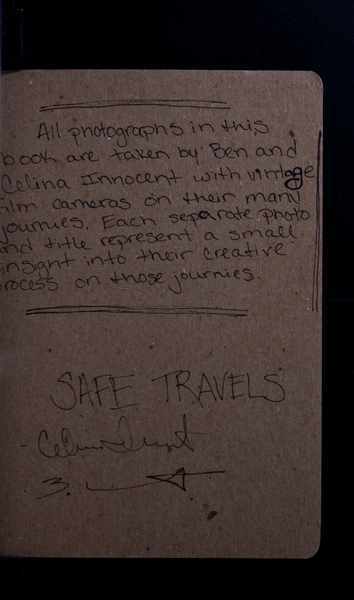 All photographs in this
book are taken by Ben and
Celina Innocent with vintage
film cameras on their many
journies. Each separate photo
and title represent a small
insight into their creative
rocess on those journies.
SAFE TRAVELS